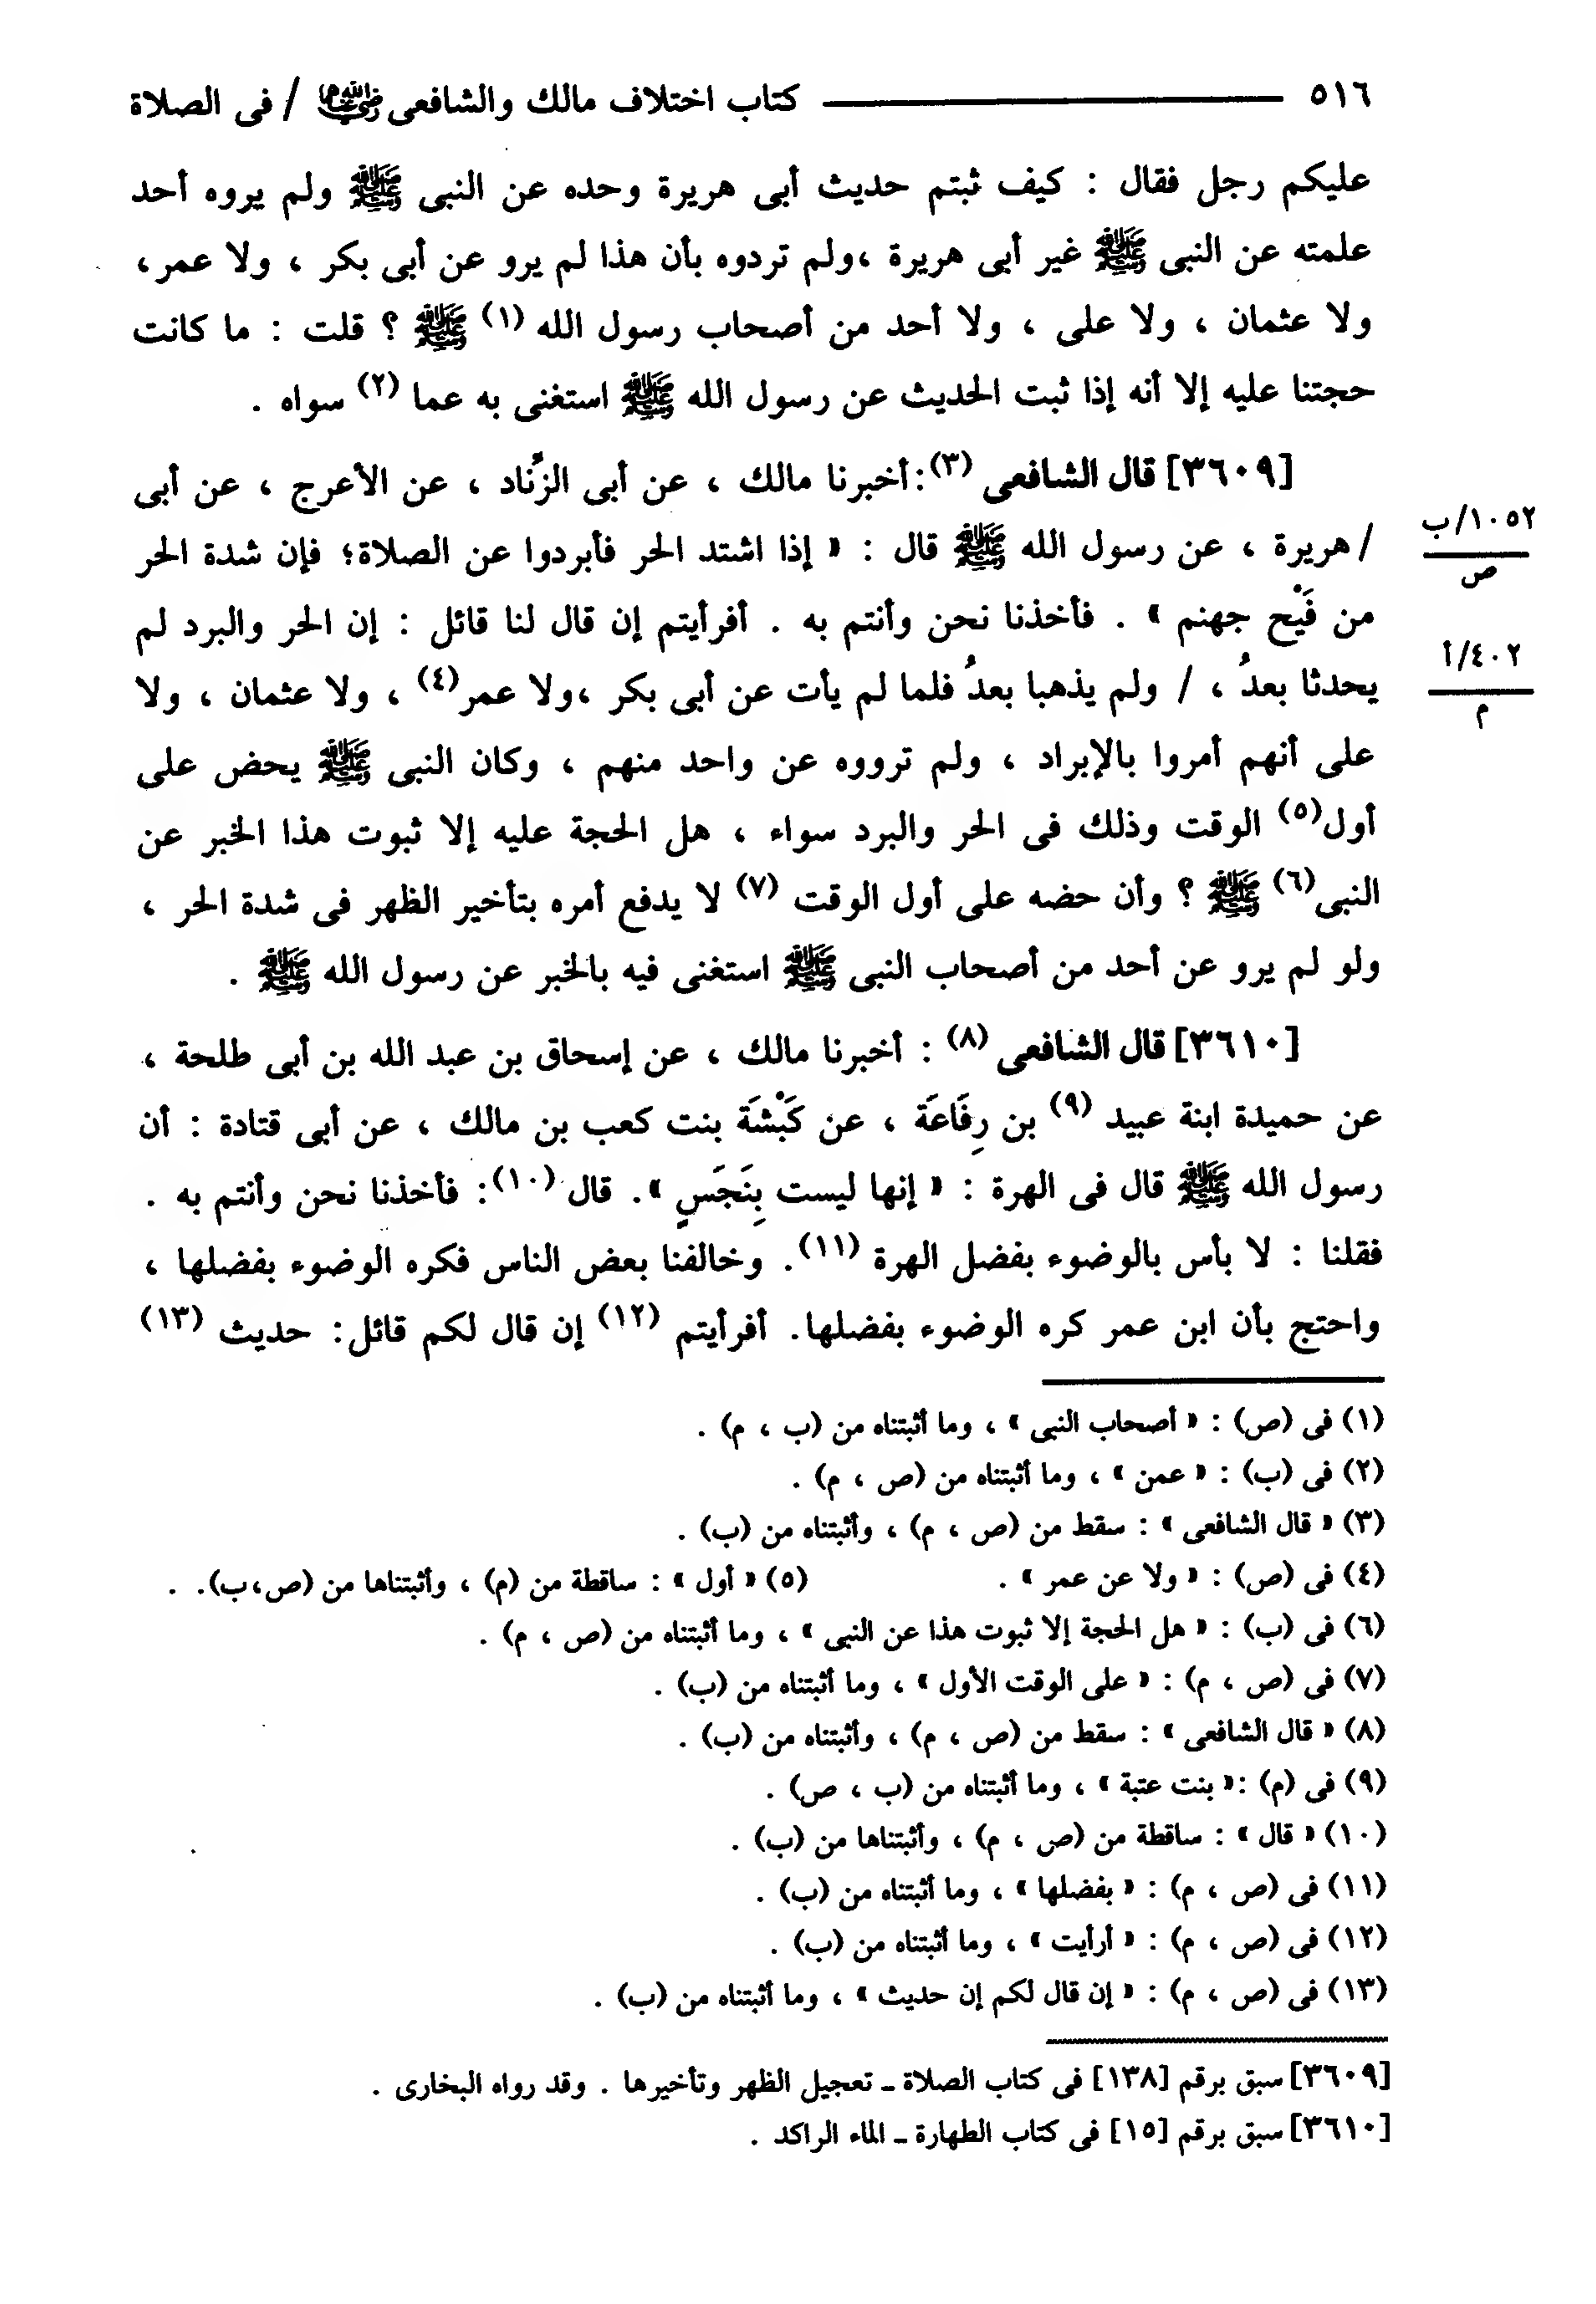 ٥١٦ ــــــ كتاب اختلاف مالك والشافعى رضي الله عنهما / فى الصلاة
عليكم رجل فقال : كيف ثبتم حديث أبى هريرة وحده عن النبى ﷺ ولم يروه أحد
علمته عن النبى ﷺ غير أبى هريرة ،ولم تردوه بأن هذا لم يرو عن أبى بكر ، ولا عمر،
ولا عثمان ، ولا على ، ولا أحد من أصحاب رسول الله (١) ﷺ ؟ قلت : ما كانت
حجتنا عليه إلا أنه إذا ثبت الحديث عن رسول الله ﷺ استغنى به عما (٢) سواه .
[٣٦٠٩] قال الشافعى (٣):أخبرنا مالك ، عن أبى الزِّناد ، عن الأعرج ، عن أبى
١٠٥٢/ب
ص
/ هريرة ، عن رسول الله ﷺ قال : « إذا اشتد الحر فأبردوا عن الصلاة؛ فإن شدة الحر
من فَيْح جهنم » . فأخذنا نحن وأنتم به . أفرأيتم إن قال لنا قائل : إن الحر والبرد لم
٤٠٢/أ
م
يحدثا بعدُ ، / ولم يذهبا بعدُ فلما لم يأت عن أبى بكر ،ولا عمر(٤) ، ولا عثمان ، ولا
على أنهم أمروا بالإبراد ، ولم ترووه عن واحد منهم ، وكان النبى ﷺ يحض على
أول(٥) الوقت وذلك فى الحر والبرد سواء ، هل الحجة عليه إلا ثبوت هذا الخبر عن
النبى(٦) ﷺ ؟ وأن حضه على أول الوقت (٧) لا يدفع أمره بتأخير الظهر فى شدة الحر ،
ولو لم يرو عن أحد من أصحاب النبى ﷺ استغنى فيه بالخبر عن رسول الله ﷺ .
[٣٦١٠] قال الشافعى (٨) : أخبرنا مالك ، عن إسحاق بن عبد الله بن أبى طلحة ،
عن حميدة ابنة عبيد (٩) بن رِفَاعَة ، عن كَبْشَة بنت كعب بن مالك ، عن أبى قتادة : أن
رسول الله ﷺ قال فى الهرة : « إنها ليست بِنَجَسٍ ». قال (١٠): فأخذنا نحن وأنتم به .
فقلنا : لا بأس بالوضوء بفضل الهرة (١١). وخالفنا بعض الناس فكره الوضوء بفضلها ،
واحتج بأن ابن عمر كره الوضوء بفضلها. أفرأيتم (١٢) إن قال لكم قائل: حديث (١٣)
(١) فى (ص) : « أصحاب النبى » ، وما أثبتناه من (ب ، م) .
(٢) فى (ب) : « عمن » ، وما أثبتناه من (ص ، م) .
(٣) « قال الشافعى » : سقط من (ص ، م) ، وأثبتناه من (ب) .
(٤) فى (ص) : « ولا عن عمر » . (٥) « أول » : ساقطة من (م) ، وأثبتناها من (ص،ب). .
(٦) فى (ب) : « هل الحجة إلا ثبوت هذا عن النبى » ، وما أثبتناه من (ص ، م) .
(٧) فى (ص ، م) : « على الوقت الأول » ، وما أثبتناه من (ب) .
(٨) « قال الشافعى » : سقط من (ص ، م) ، وأثبتناه من (ب) .
(٩) فى (م) :« بنت عتبة » ، وما أثبتناه من (ب ، ص) .
(١٠) « قال » : ساقطة من (ص ، م) ، وأثبتناها من (ب) .
(١١) فى (ص ، م) : « بفضلها » ، وما أثبتناه من (ب) .
(١٢) فى (ص ، م) : « أرأيت » ، وما أثبتناه من (ب) .
(١٣) فى (ص ، م) : « إن قال لكم إن حديث » ، وما أثبتناه من (ب) .
[٣٦٠٩] سبق برقم [١٣٨] فى كتاب الصلاة ـ تعجيل الظهر وتأخيرها . وقد رواه البخارى .
[٣٦١٠] سبق برقم [١٥] فى كتاب الطهارة ـ الماء الراكد .